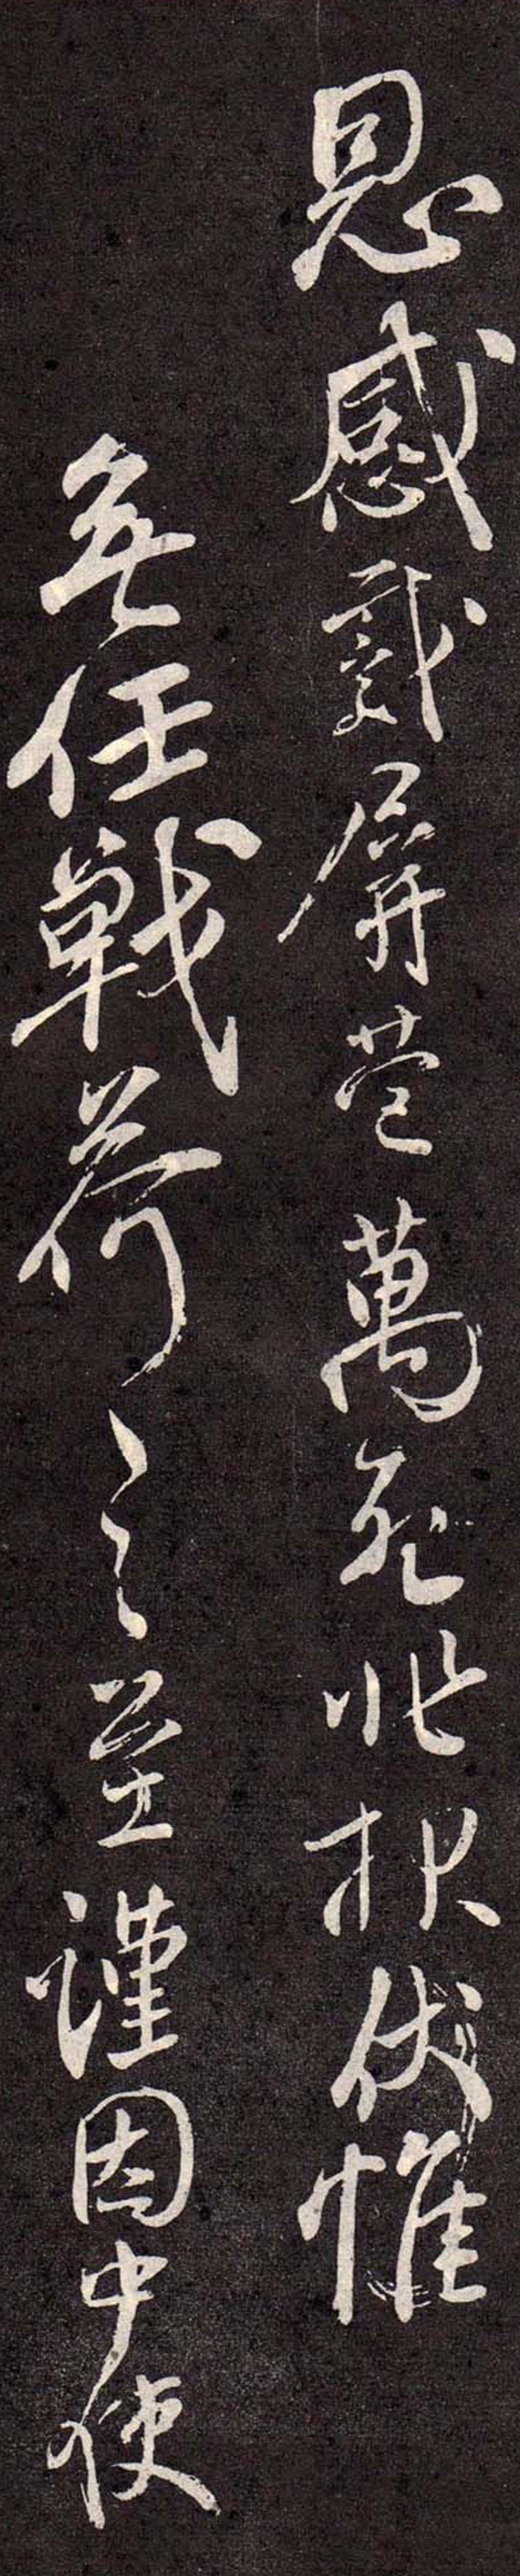 恩感戴屏營萬死非報伏惟
無任戰荷之至謹因中使